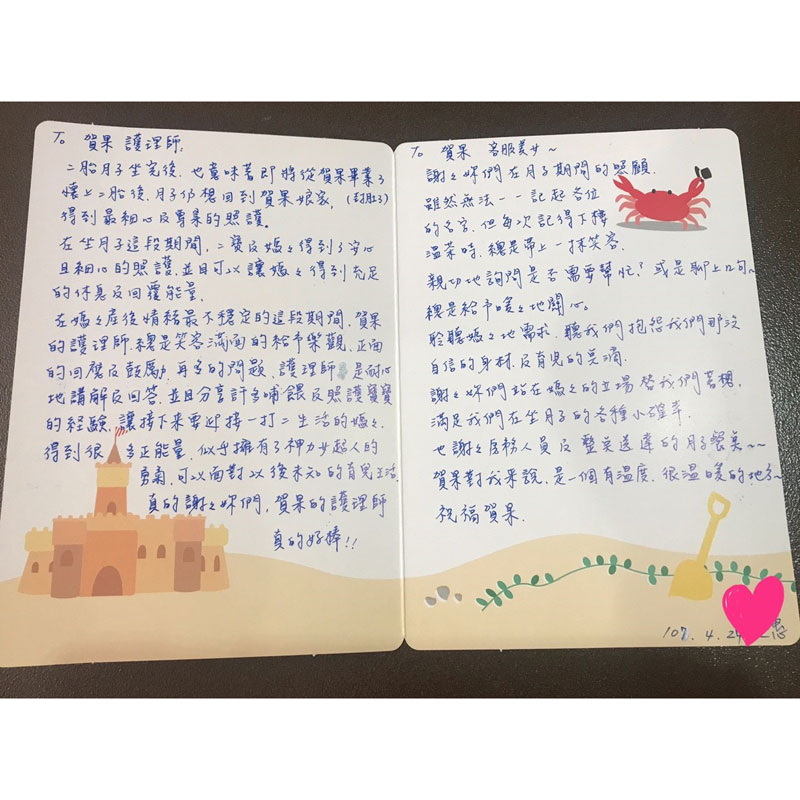 To 賀果 護理師:
二胎月子坐完後,也意味著即將從賀果畢業了
懷上二胎後,月子仍想回到賀果娘家,(封肚了)
得到最細心及專業的照護。
在坐月子這段期間,二寶及媽々得到了安心
且細心的照護,並且可以讓媽々得到充足
的休息及回覆能量.
在媽々產後情緒最不穩定的這段期間,賀果
的護理師,總是笑容滿面的給予樂觀,正面
的回應及鼓勵,再多的問題,護理師 是耐心
地講解及回答,並且分享許多哺餵及照護寶寶
的經驗,讓接下來要迎接一打二生活的媽々,
得到很多正能量,似乎擁有了神力女超人的
勇氣,可以面對以後未知的育兒生活,
真的謝々妳們,賀果的護理師
真的好棒!!
To 賀果 客服美女~
謝々妳們在月子期間的照顧.
雖然無法一一記起各位
的名字,但每次記得下樓
溫茶時,總是帶上一抹笑容.
親切地詢問是否需要幫忙?或是聊上几句~
總是給予暖々地關心.
聆聽媽々地需求,聽我們抱怨我們那沒
自信的身材及育兒的點滴.
謝々妳們站在媽々的立場替我們著想,
滿足我們在坐月子的各種小確幸.
也謝々房務人員及整英送達的月子餐桌~~
賀果對我來說,是一個有溫度,很溫暖的地方~
祝福賀果.
107. 4. 24